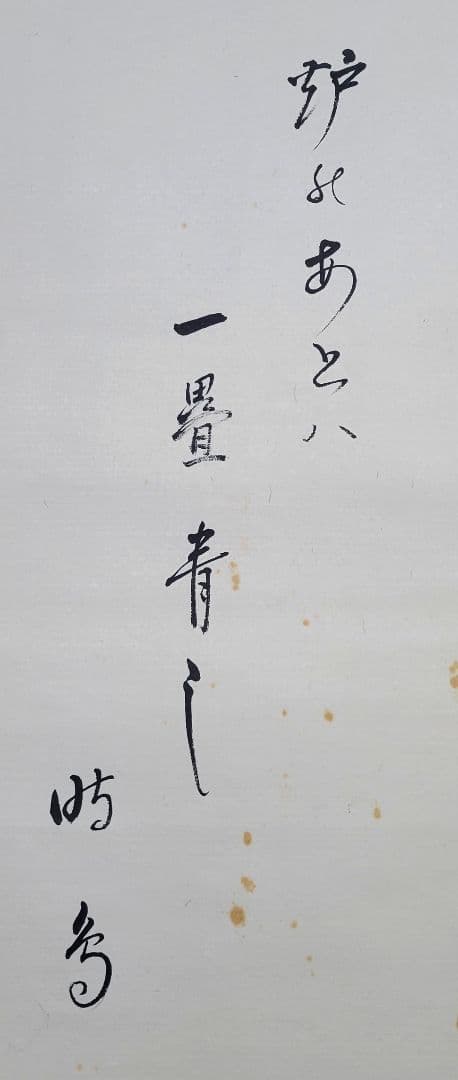 炉のあとハ
一畳青し
時鳥